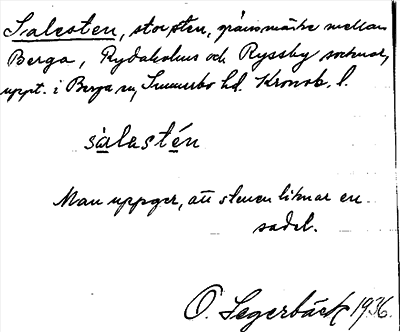 Salesten, stor sten, gränsmärke mellan
Berga, Rydaholms och Ryssby socknar,
uppt. i Berga sn, Sunnerbo hd. Kronob. l.
sàlestén
Man uppger, att stenen liknar en
sadel.
O. Segerbäck 1936.